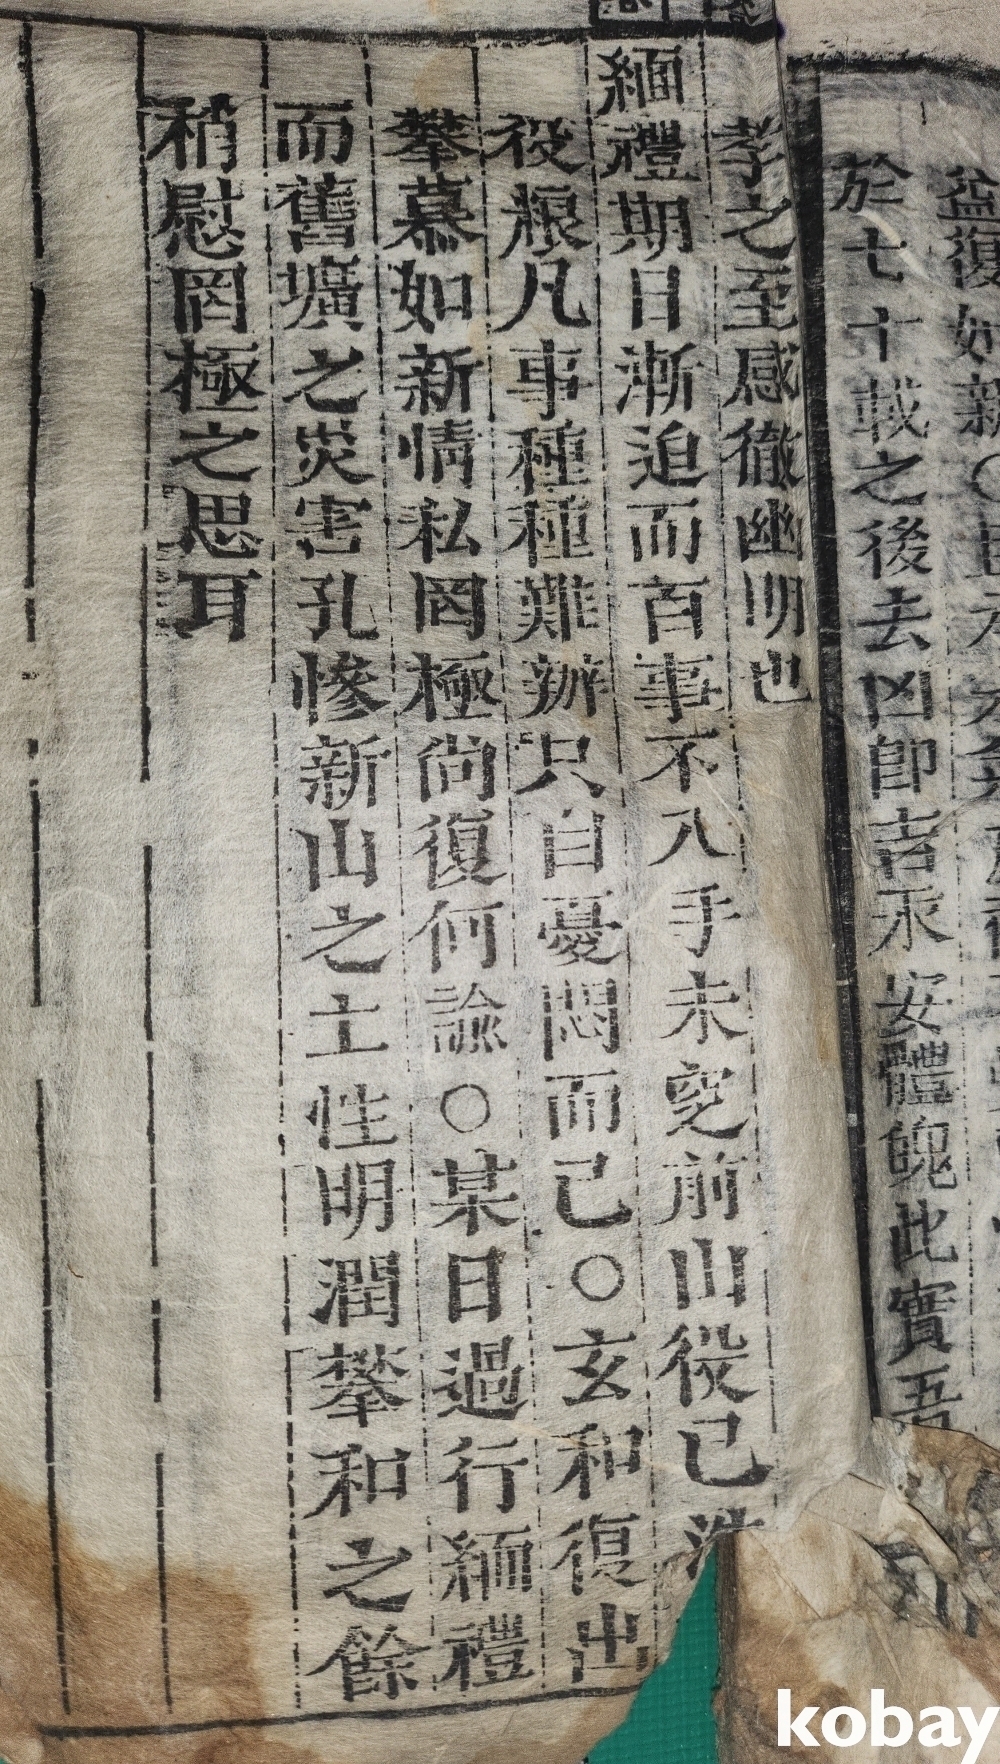 益復如新○
於七十載之後去凶卽吉永安體魄此實吾
孝之至感徹幽明也
緬禮期日漸迫而百事不入手未窆前山役已
役粮凡事種種難辦只自憂悶而已○玄和復出
攀慕如新情私罔極尙復何諭○某日過行緬禮
而舊壙之災害孔慘新山之土性明潤攀和之餘
稍慰罔極之思耳
kobay